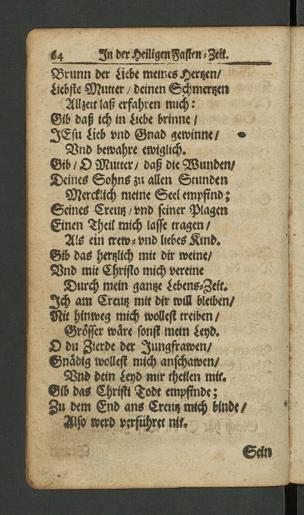 64 In der Heiligen Fasten-Zeit.
Brunn der Liebe meines Hertzen/
Liebste Mutter/ deinen Schmertzen
Allzeit laß erfahren mich:
Gib daß ich in Liebe brinne/
JEsu Lieb vnd Gnad gewinne/
Vnd bewahre ewiglich.
Gib/ O Mutter/ daß die Wunden/
Deines Sohns zu allen Stunden
Mercklich meine Seel empfind;
Seines Creutz/ vnd seiner Plagen
Einen Theil mich lasse tragen/
Als ein trew- vnd liebes Kind.
Gib das hertzlich mit dir weine/
Vnd mit Christo mich vereine
Durch mein gantze Lebens-Zeit.
Ich am Creutz mit dir will bleiben/
Nit hinweg mich wollest treiben/
Grösser wäre sonst mein Leyd.
O du Zierde der Jungfrawen/
Gnädig wollest mich anschawen/
Vnd dein Leyd mir theilen mit.
Gib das Christi Todt empfinde;
Zu dem End ans Creutz mich binde/
Also werd verführet nit.
Sein